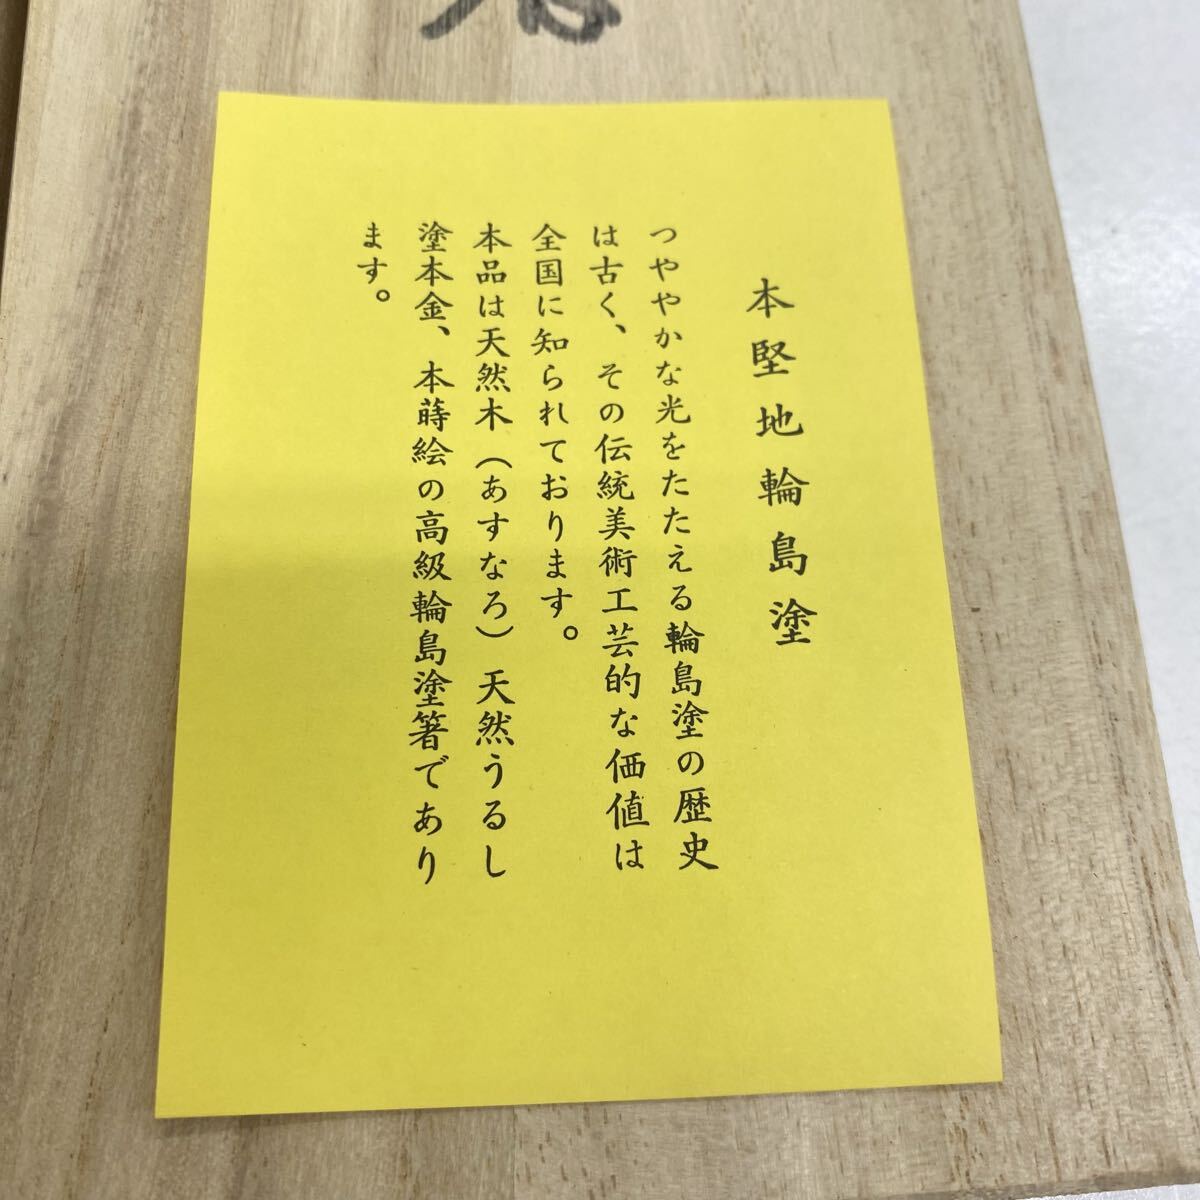 本堅地輪島塗
つややかな光をたたえる輪島塗の歴史
は古く、その伝統美術工芸的な価値は
全国に知られております。
本品は天然木（あすなろ）天然うるし
塗本金、本蒔絵の高級輪島塗箸であり
ます。